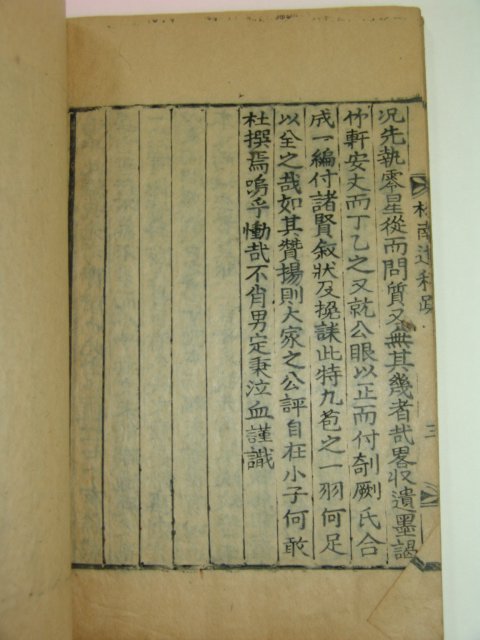 况先執零星從而問質又無其幾者哉畧收遺墨謁
竹軒安丈而丁乙之又就公眼以正而付剞劂氏合
成一編付諸賢叙狀及挽誄此特九苞之一羽何足
以全之哉如其贊揚則大家之公評自在小子何敢
杜撰焉嗚乎慟哉不肖男定秉泣血謹識
南遺稿跋
三